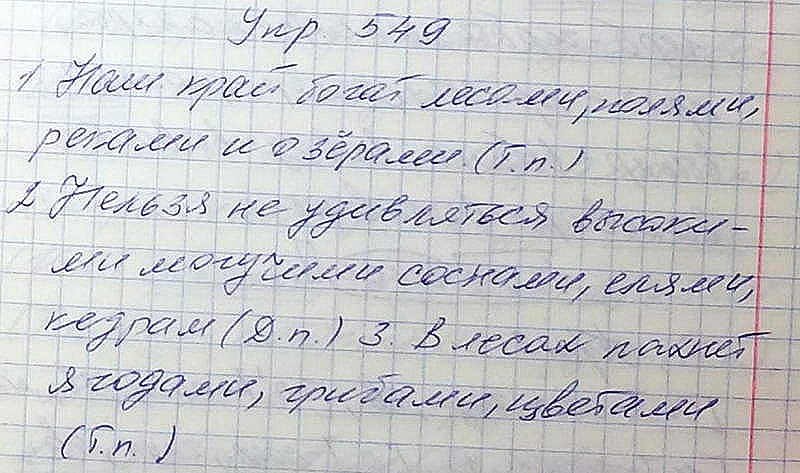 Упр. 549
1 Наш край богат лесами, полями,
реками и озёрами. (Т.п.)
2 Нельзя не удивляться высоки-
ми могучими соснами, елями,
кедрам (Д.п.) 3. В лесах пахнет
ягодами, грибами, цветами
(Т.п.)